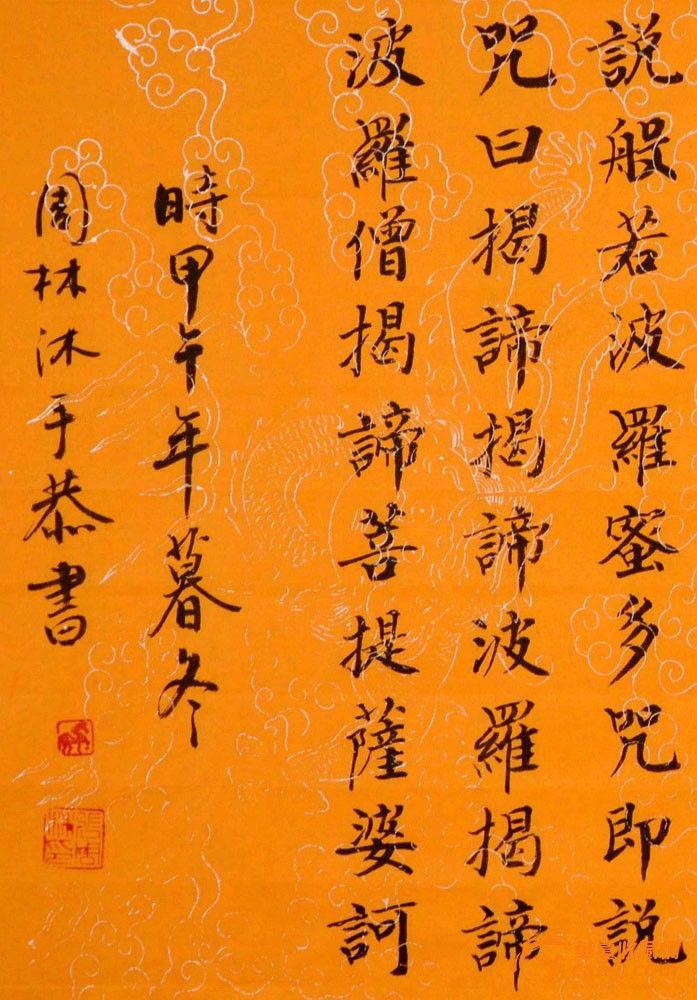 說般若波羅蜜多咒即說
咒曰揭諦揭諦波羅揭諦
波羅僧揭諦菩提薩婆訶
時甲午年暮冬
周林沐手恭書